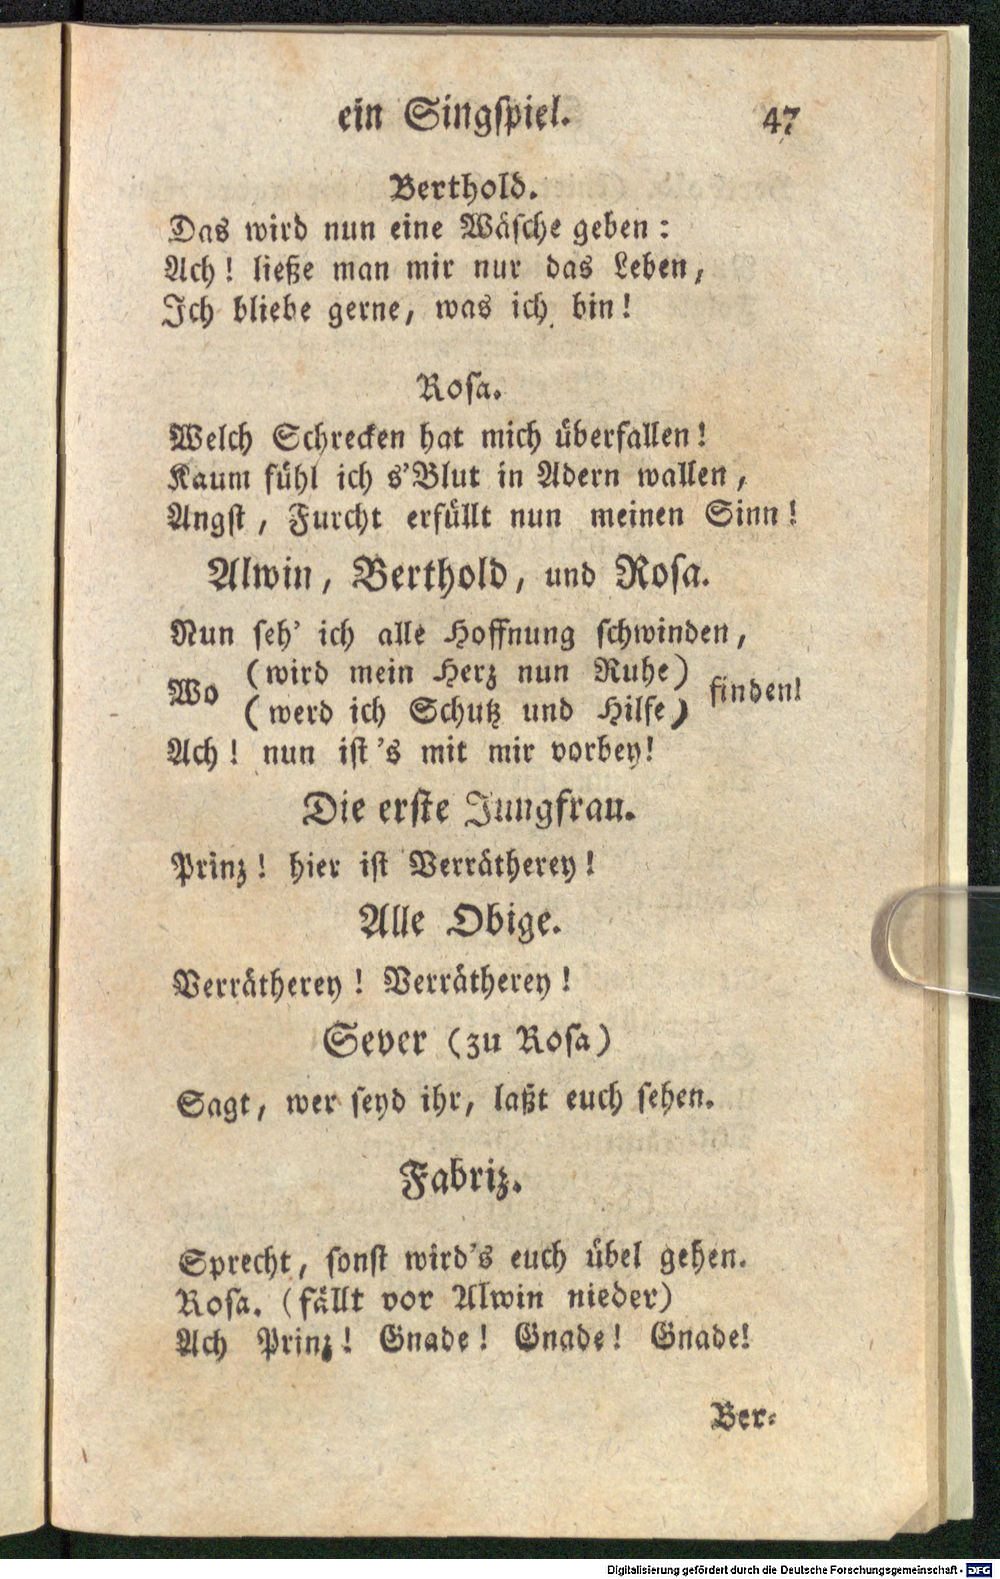 ein Singſpiel. 47
Berthold.
Das wird nun eine Wäſche geben:
Ach! ließe man mir nur das Leben,
Ich bliebe gerne, was ich bin!
Roſa.
Welch Schrecken hat mich überfallen!
Kaum fühl ich s'Blut in Adern wallen,
Angſt, Furcht erfüllt nun meinen Sinn!
Alwin, Berthold, und Roſa.
Nun ſeh' ich alle Hoffnung ſchwinden,
Wo (wird mein Herz nun Ruhe) finden!
(werd ich Schutz und Hilfe)
Ach! nun iſt's mit mir vorbey!
Die erſte Jungfrau.
Prinz! hier iſt Verrätherey!
Alle Obige.
Verrätherey! Verrätherey!
Sever (zu Roſa)
Sagt, wer ſeyd ihr, laßt euch ſehen.
Fabriz.
Sprecht, ſonſt wird's euch übel gehen.
Roſa. (fällt vor Alwin nieder)
Ach Prinz! Gnade! Gnade! Gnade!
Ber⸗
Digitalisierung gefördert durch die Deutsche Forschungsgemeinschaft - DFG